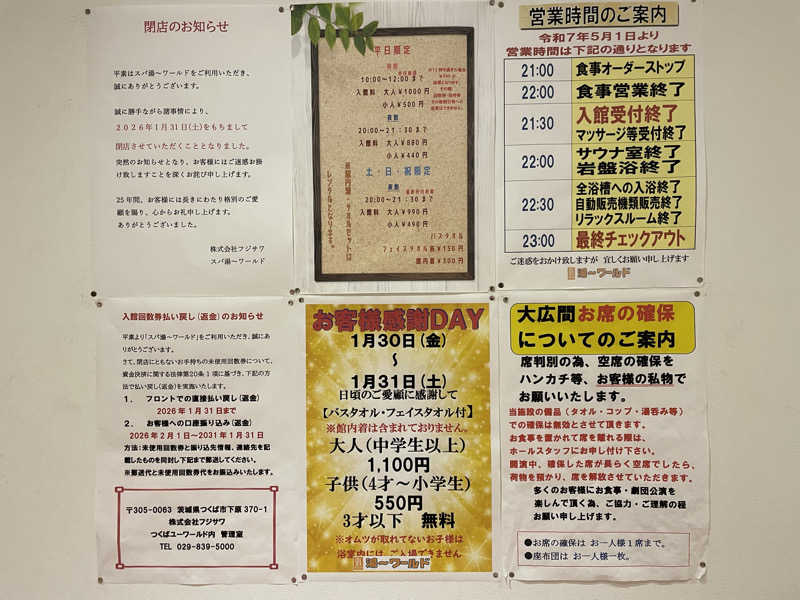 閉店のお知らせ
平素はスパ湯～ワールドをご利用いただき、
誠にありがとうございます。
誠に勝手ながら諸事情により、
2026年1月31日(土)をもちまして
閉店させていただくこととなりました。
突然のお知らせとなり、お客様にはご迷惑お掛
け致しますことを深くお詫び申し上げます。
25年間、お客様には長きにわたり格別のご愛
顧を賜り、心からお礼申し上げます。
ありがとうございました。
株式会社フジサワ
スパ湯～ワールド
平日限定
10:00～12:00まで
入館料 大人¥1000円
小人¥500円
夜割
20:00～21:30まで
入館料 大人¥880円
小人¥440円
土・日・祝限定
夜割
20:00～21:30まで
入館料 大人¥990円
小人¥490円
バスタオル
フェイスタオル各¥150円
館内着¥300円
※館内着・タオルセットは
レンタルとなります。
営業時間のご案内
令和7年5月1日より
営業時間は下記の通りとなります
21:00 食事オーダーストップ
22:00 食事営業終了
21:30 入館受付終了
マッサージ等受付終了
22:00 サウナ室終了
岩盤浴終了
22:30 全浴槽への入浴終了
自動販売機類販売終了
リラックスルーム終了
23:00 最終チェックアウト
ご迷惑をおかけ致しますが 宜しくお願い申し上げます
湯～ワールド
入館回数券払い戻し(返金)のお知らせ
平素より「スパ湯～ワールド」をご利用いただき、誠にあ
りがとうございます。
さて、閉店にともないお手持ちの未使用回数券について、
資金決済に関する法律第20条1項に基づき、下記の方
法で払い戻し(返金)を実施いたします。
1. フロントでの直接払い戻し(返金)
2026年1月31日まで
2. お客様への口座振り込み(返金)
2026年2月1日～2031年1月31日
方法:未使用回数券と振り込先情報、連絡先を記
載したものを同封し下記まで郵送してください。
※郵送代と未使用回数券代をお振込みいたします。
〒305-0063 茨城県つくば市下原370-1
株式会社フジサワ
つくばユーワールド内 管理室
TEL 029-839-5000
お客様感謝DAY
1月30日(金)
～
1月31日(土)
日頃のご愛顧に感謝して
【バスタオル・フェイスタオル付】
※館内着は含まれておりません。
大人(中学生以上)
1,100円
子供(4才～小学生)
550円
3才以下 無料
※オムツが取れてないお子様は
浴室内には、ご入場できません
湯～ワールド
大広間お席の確保
についてのご案内
席判別の為、空席の確保を
ハンカチ等、お客様の私物で
お願いいたします。
当施設の備品(タオル・コップ・湯呑み等)
での確保は無効とさせて頂きます。
お食事を置かれて席を離れる際は、
ホールスタッフにお申し付け下さい。
開演中、確保した席が長らく空席でしたら、
荷物を預かり、席を解放させていただきます。
多くのお客様にお食事・劇団公演を
楽しんで頂く為、ご協力・ご理解の程
お願い申し上げます。
●お席の確保は お一人様1席まで。
●座布団は お一人様一枚。